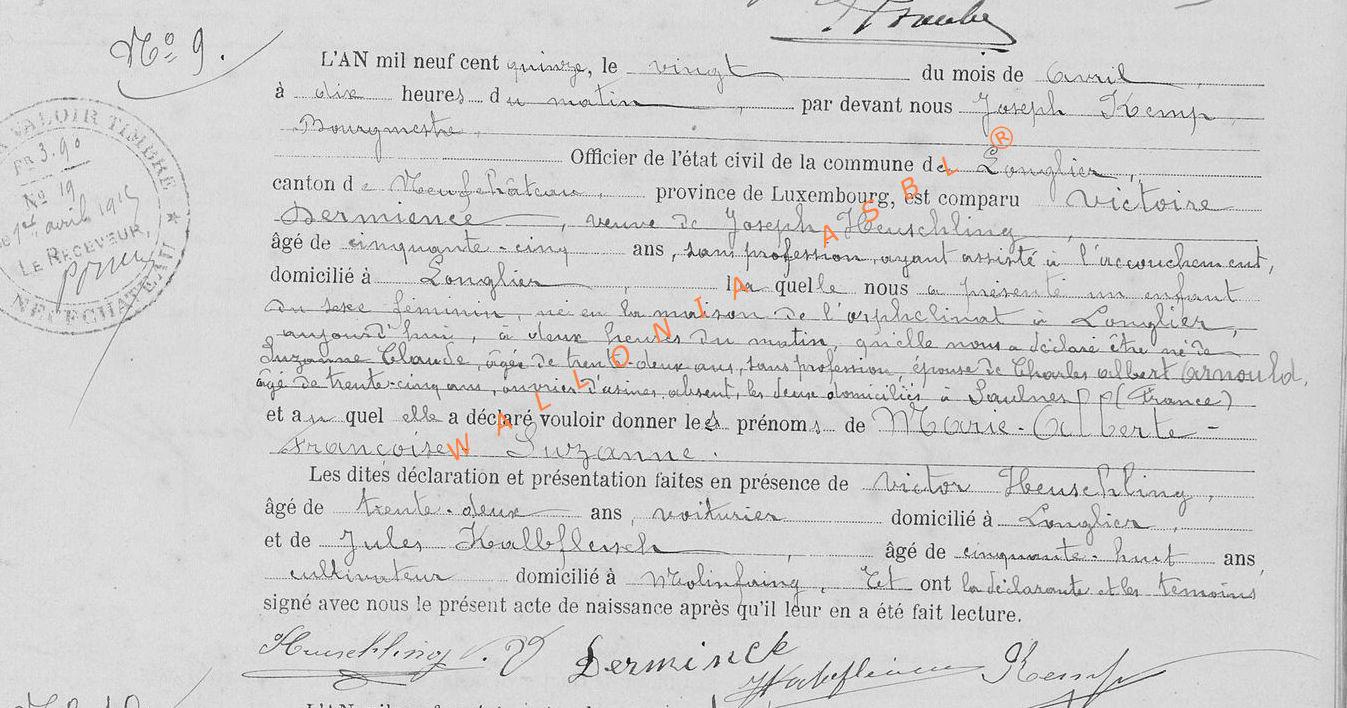 Nº 9.
L'AN mil neuf cent quinze, le vingt du mois de avril
à dix heures du matin, par devant nous Joseph Kemp,
Bourgmestre,
Officier de l'état civil de la commune de Longlier,
canton de Neufchâteau, province de Luxembourg, est comparu Victoire
Dermience, veuve de Joseph Heuschling,
âgé de cinquante-cinq ans, sans profession, ayant assisté à l'accouchement,
domicilié à Longlier, laquelle nous a présenté un enfant
du sexe féminin, né en la maison de l'orphelinat à Longlier,
aujourd'hui, à deux heures du matin, qu'elle nous a déclaré être né de
Suzanne Claude, âgée de trente-deux ans, sans profession, épouse de Charles Albert Arnould,
âgé de trente-cinq ans, ouvrier d'usines, absent, les deux domiciliés à Saulnes (France)
et auquel elle a déclaré vouloir donner les prénoms de Marie-Alberte-
Françoise Suzanne.
Les dites déclaration et présentation faites en présence de Victor Heuschling,
âgé de trente-deux ans, voiturier domicilié à Longlier,
et de Jules Kalbfleisch, âgé de cinquante-huit ans,
cultivateur domicilié à Molinfaing, Et ont la déclarante et les témoins
signé avec nous le présent acte de naissance après qu'il leur en a été fait lecture.
Heuschling V. Derminck Kalbfleisch Kemp
VALOIR TIMBRE
FR 3.90
Nº 19
1er avril 1915
LE RECEVEUR,
NEUFCHATEAU
WALLONIA ASBL ®